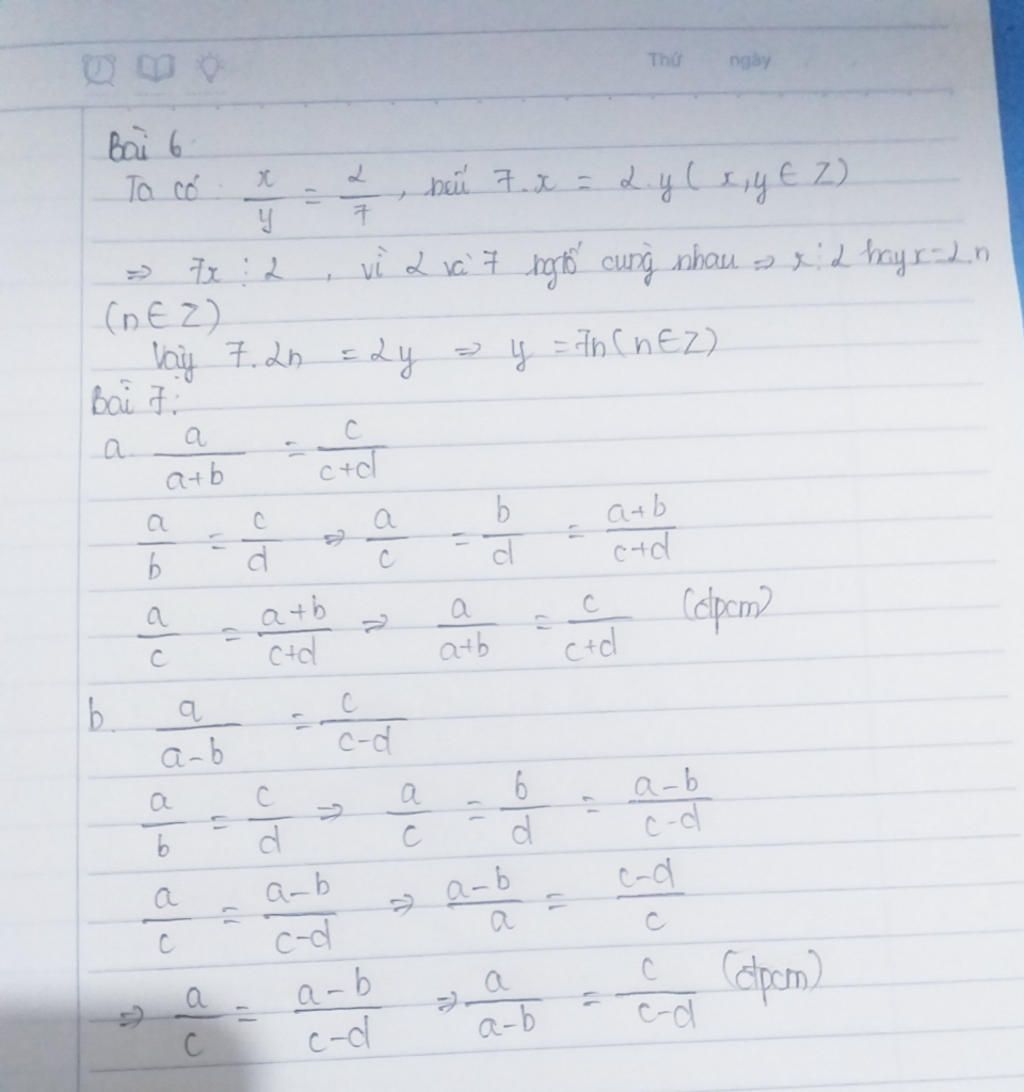 Thứ ngày
Bài 6
Ta có x/y = 2/7, 7.x = 2.y (x,y ∈ Z)
⇒ 7x ⋮ 2, vì 2 và 7 ngtố cùng nhau ⇒ x ⋮ 2 hay x = 2.n
(n ∈ Z)
Vậy 7.2n = 2y ⇒ y = 7n (n ∈ Z)
Bài 7:
a. a/(a+b) = c/(c+d)
a/b = c/d ⇒ a/c = b/d = (a+b)/(c+d)
a/c = (a+b)/(c+d) ⇒ a/(a+b) = c/(c+d) (đpcm)
b. a/(a-b) = c/(c-d)
a/b = c/d ⇒ a/c = b/d = (a-b)/(c-d)
a/c = (a-b)/(c-d) ⇒ (a-b)/a = (c-d)/c
⇒ a/c = (a-b)/(c-d) ⇒ a/(a-b) = c/(c-d) (đpcm)